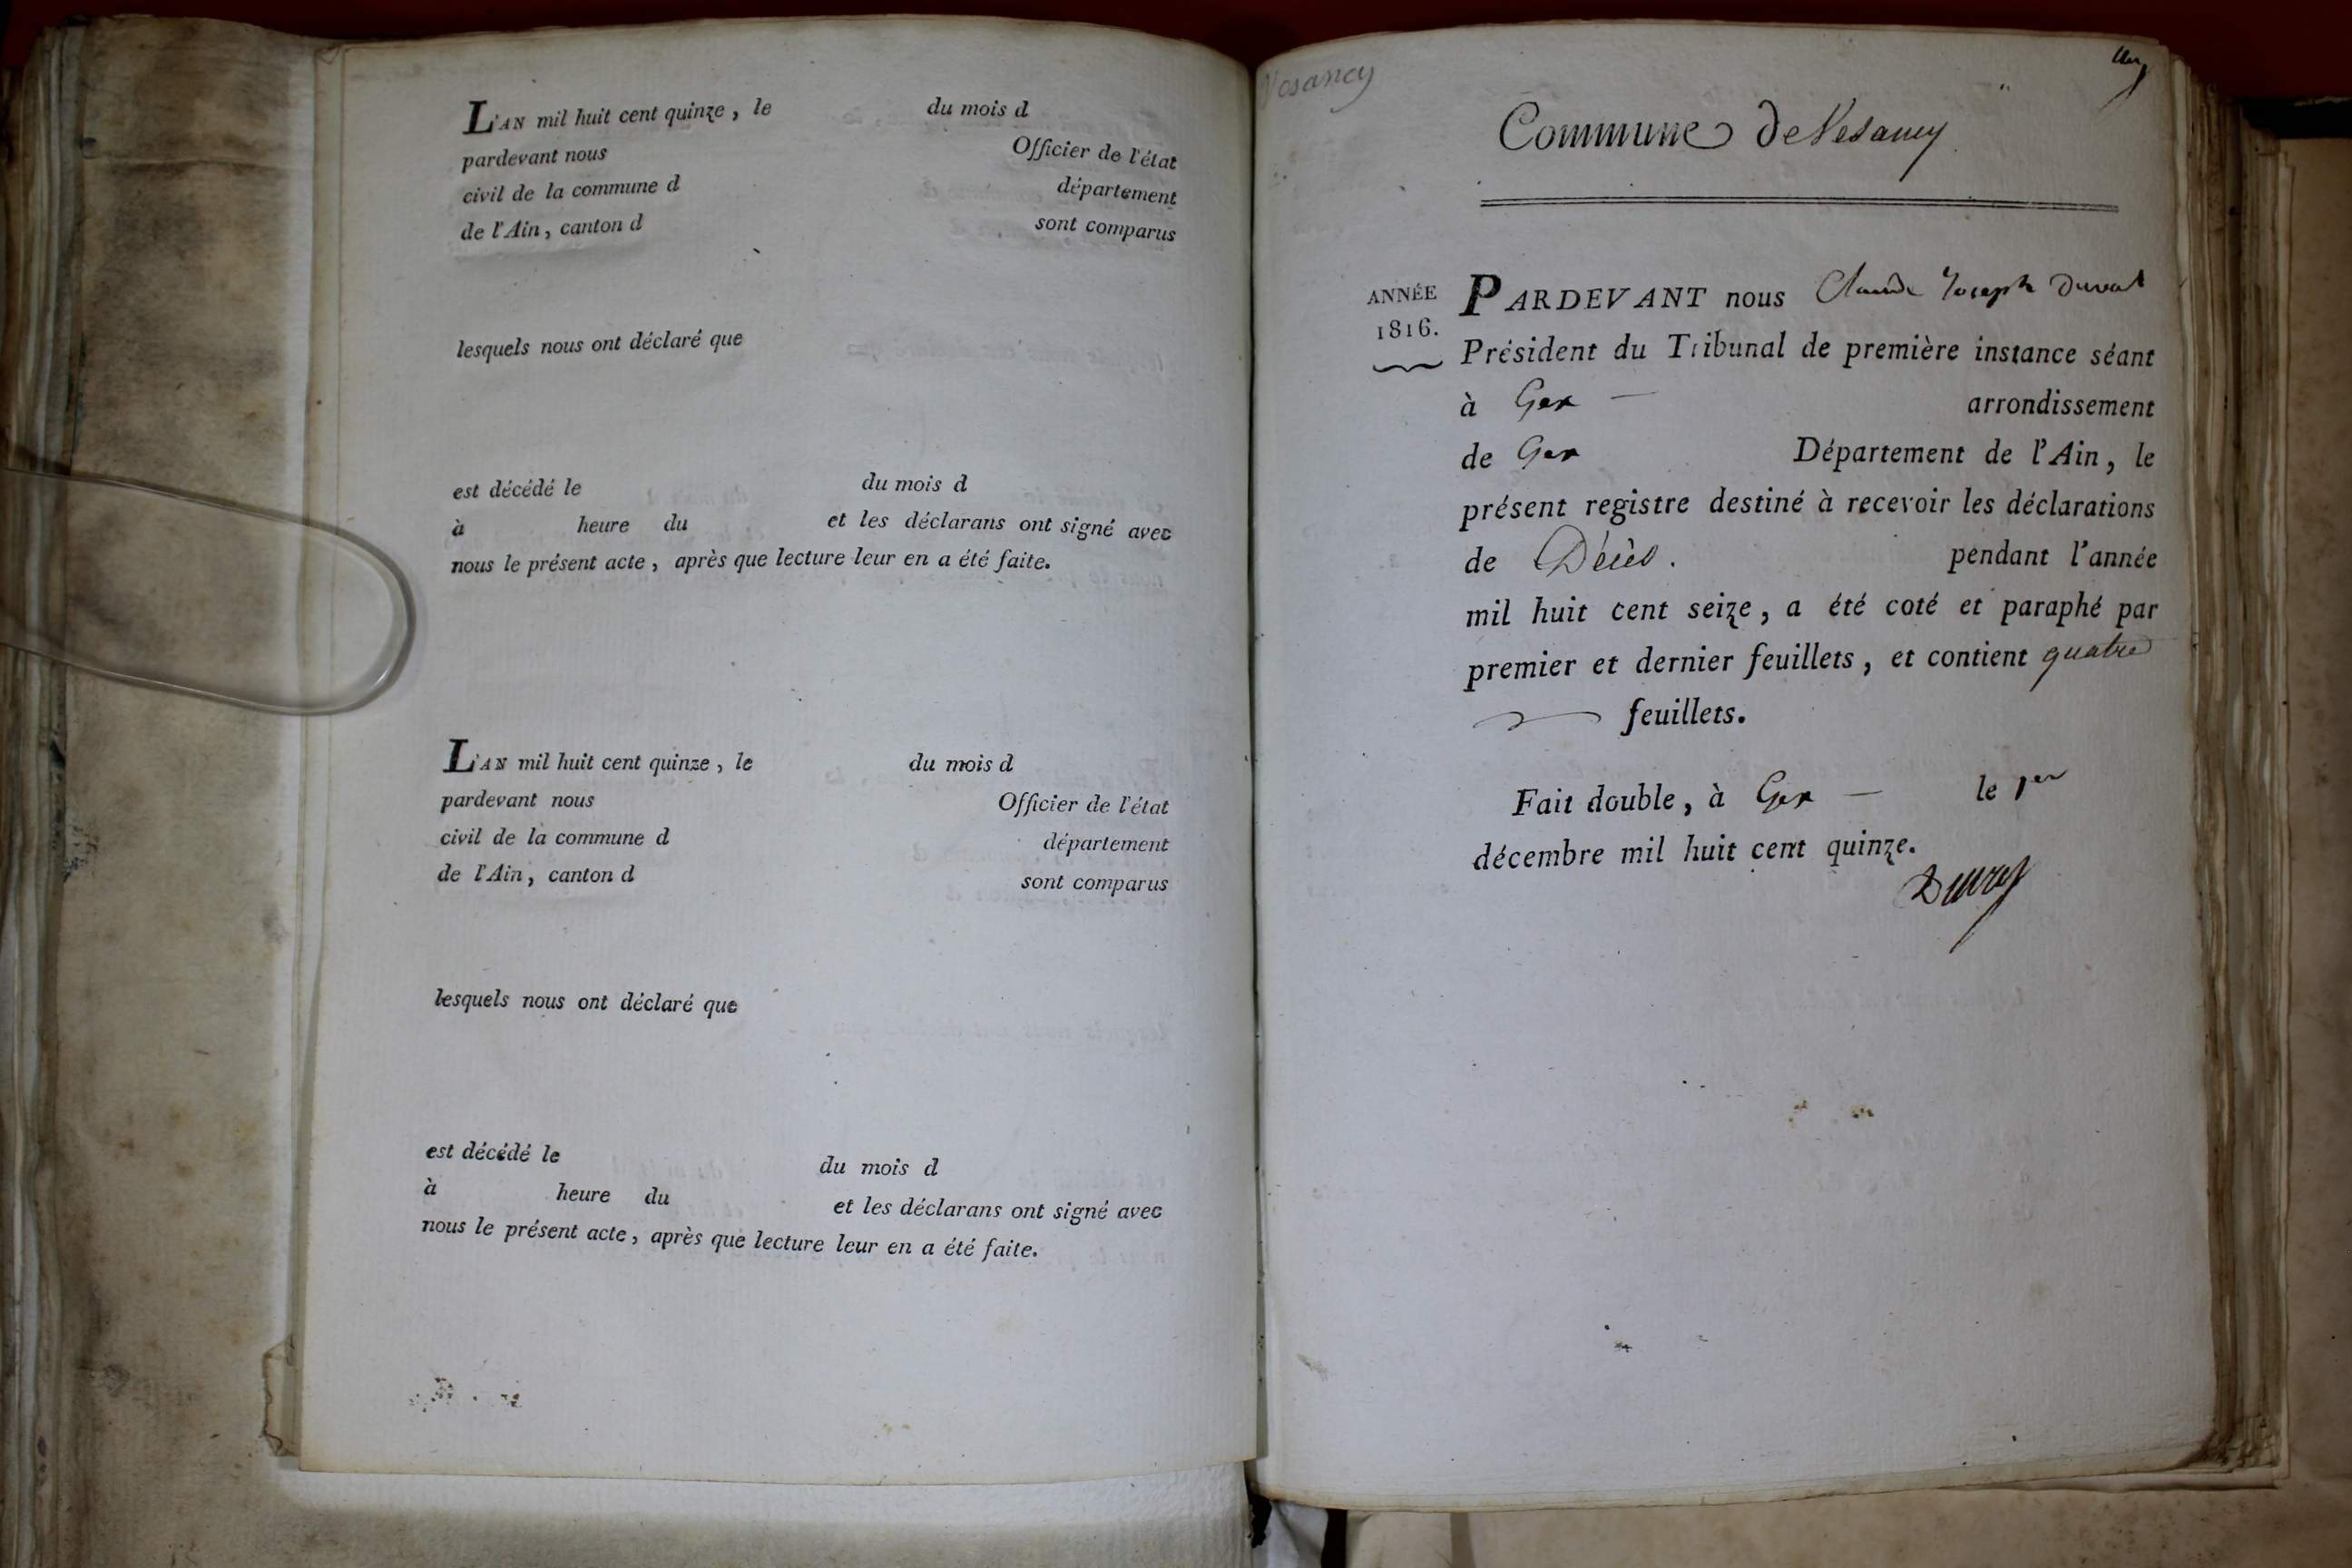 L'AN mil huit cent quinze, le du mois d
pardevant nous Officier de l'état
civil de la commune d département
de l'Ain, canton d sont comparus
lesquels nous ont déclaré que
est décédé le du mois d
à heure du et les déclarans ont signé avec
nous le présent acte, après que lecture leur en a été faite.
L'AN mil huit cent quinze, le du mois d
pardevant nous Officier de l'état
civil de la commune d département
de l'Ain, canton d sont comparus
lesquels nous ont déclaré que
est décédé le du mois d
à heure du et les déclarans ont signé avec
nous le présent acte, après que lecture leur en a été faite.
Vesancy
Commune de Vesancy
ANNÉE
1816.
PARDEVANT nous Claude Joseph Duval
Président du Tribunal de première instance séant
à Gex — arrondissement
de Gex Département de l'Ain, le
présent registre destiné à recevoir les déclarations
de Décès. pendant l'année
mil huit cent seize, a été coté et paraphé par
premier et dernier feuillets, et contient quatre
feuillets.
Fait double, à Gex — le 1er
décembre mil huit cent quinze.